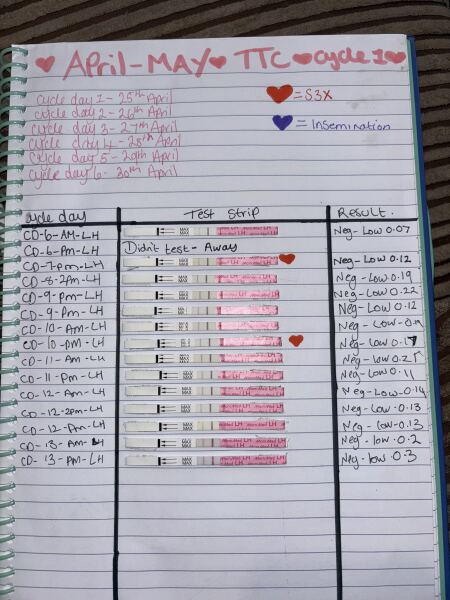 APRIL-MAY TTC cycle 1
cycle day 1 - 25th April
cycle day 2 - 26th April
cycle day 3 - 27th April
cycle day 4 - 28th April
cycle day 5 - 29th April
cycle day 6 - 30th April
= S3X
= Insemination
cycle day Test strip Result.
CD-6-AM-LH Neg-Low 0.07
CD-6-PM-LH Didn't test - Away
CD-7-PM-LH Neg-Low 0.12
CD-8-2PM-LH Neg-Low 0.19
CD-9-PM-LH Neg-Low 0.22
CD-9-PM-LH Neg-Low 0.12
CD-10-AM-LH Neg-Low
CD-10-PM-LH Neg-Low 0.17
CD-11-AM-LH Neg-Low
CD-11-PM-LH Neg-Low 0.11
CD-12-AM-LH Neg-Low-0.14
CD-12-2PM-LH Neg-Low-0.13
CD-12-PM-LH Neg-Low-0.13
CD-13-AM-LH Neg-low 0.2
CD-13-PM-LH Neg-low 0.3